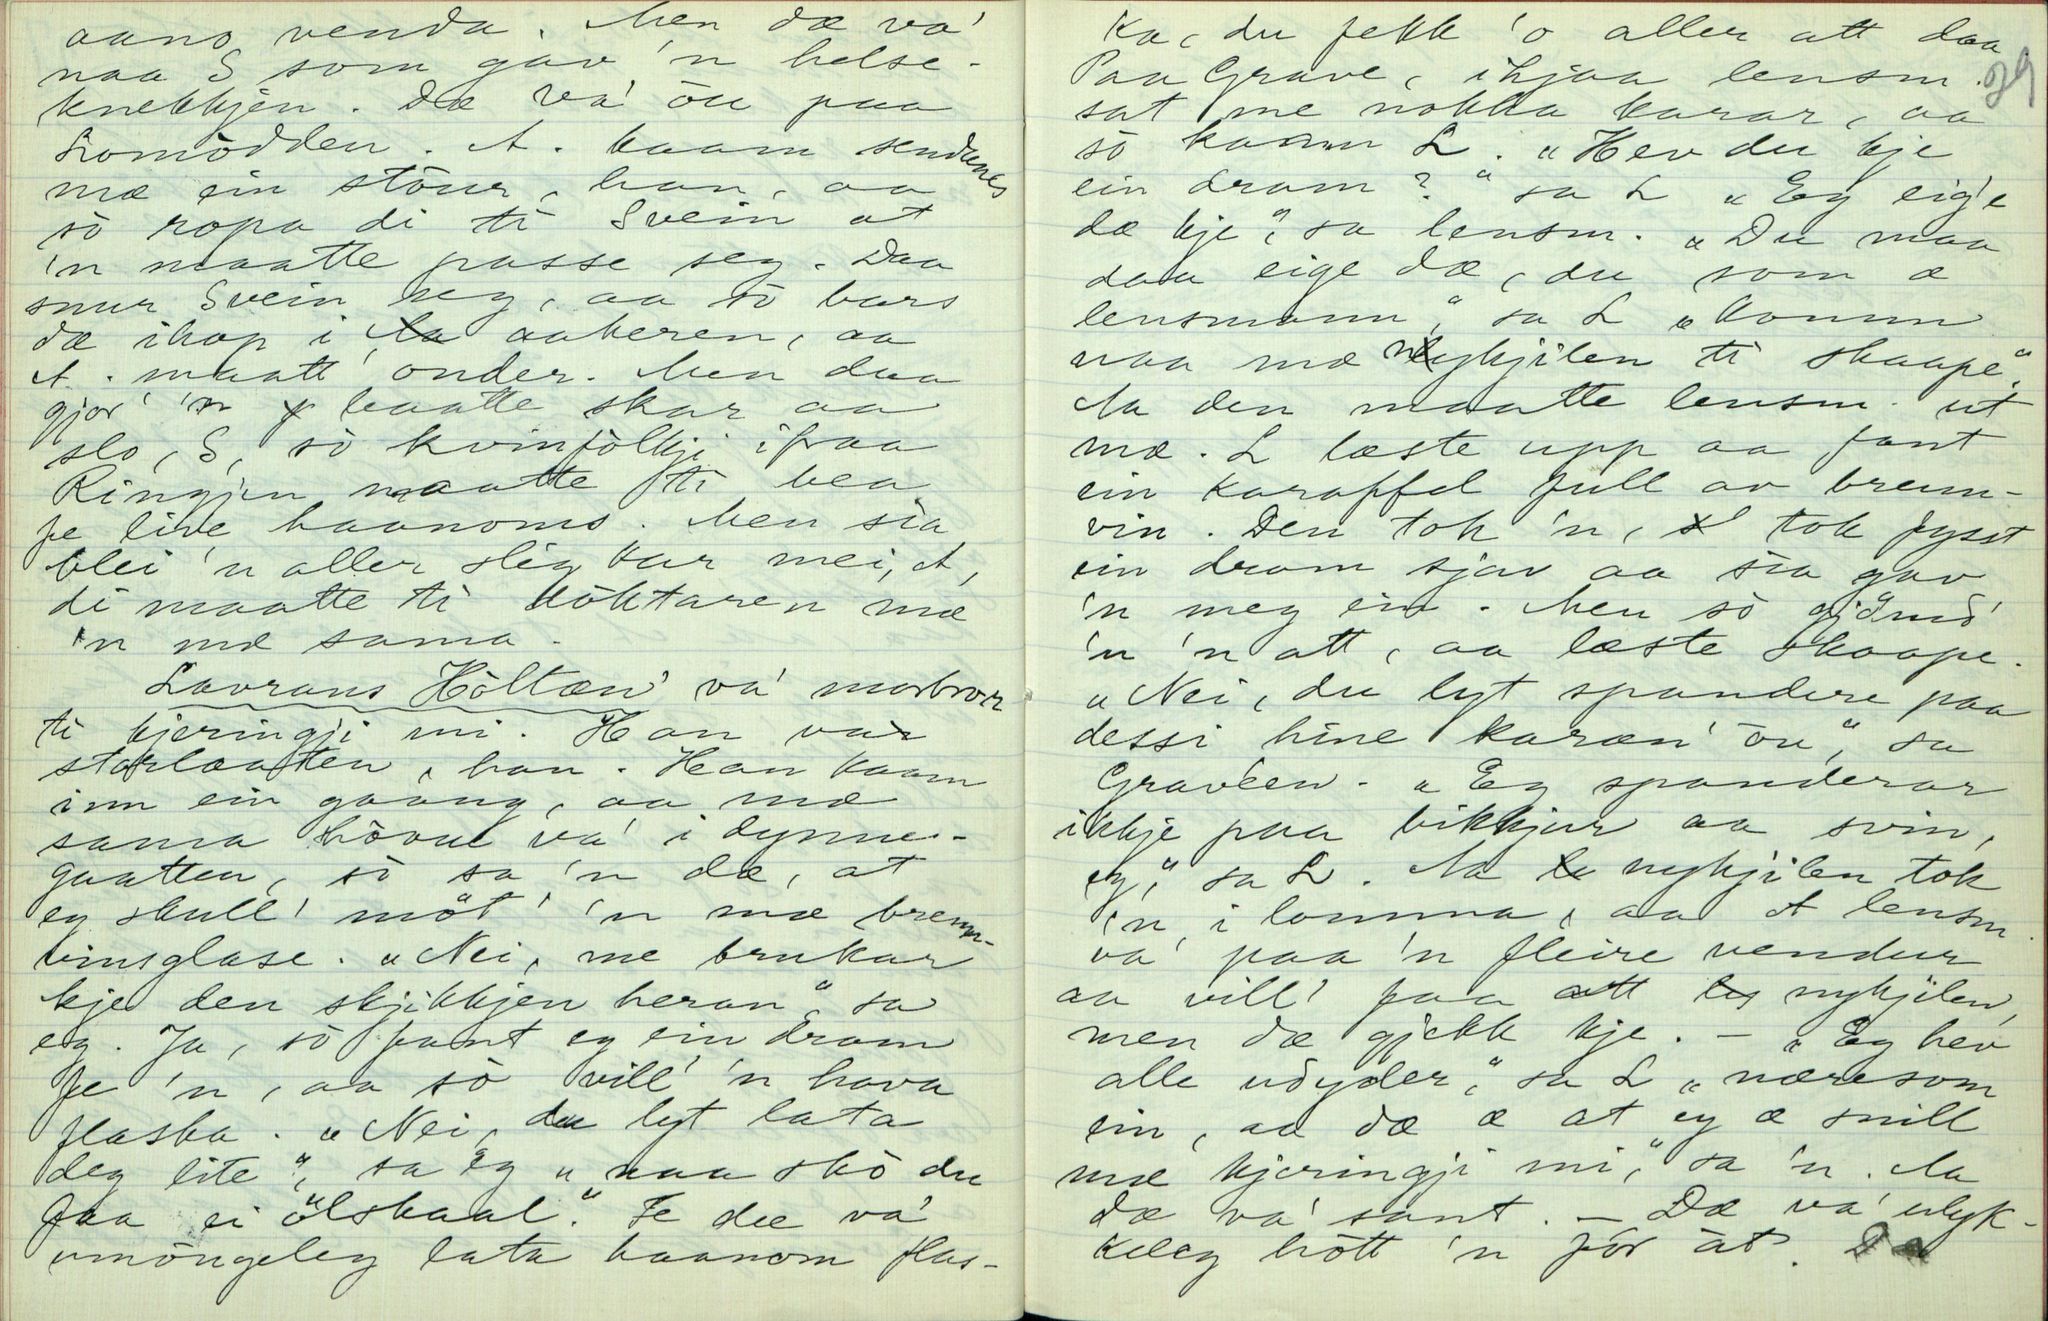 aano venda. Men dæ va'
naa S som gav 'n helse-
knekkjen. Dæ va' ōu paa
Lomōdden. A. kaam sendanes
mæ ein stōur, han, aa
sō ropa di ti Svein at
'n maatte passe seg. Daa
snur Svein seg, aa sō bars
dæ ihop i aakeren, aa
A. maatt' onder. Men daa
gjor' 'n baatte skar aa
slo, S, sō kvinfōlkji ifraa
Ringjen maatte ti bea
fe live haanoms. Men sia
blei 'n aller slig kar mei, A,
di maatte ti dōktaren mæ
'n mæ sama.
Lavrans Hōltæn' va' morbror
ti kjeringji mi. Han var
storlaaten, han. Han kaam
inn ein gaang, aa mæ
sama hōvue va' i dynne-
gaatten, sō sa 'n dæ, at
eg skull' mōt' 'n mæ brenn-
vinsglase. „Nei, me brukar
kje den skjikkjen heran" sa
eg. Ja, sō fant eg ein dram
fe 'n, aa sō vill' 'n hava
flaska. „Nei, du lyt lata
deg lite", sa eg „naa skō du
faa ei ōlskaal." Fe dæ va'
umōngeleg lata haanom flas-
29
ka, du fekk 'o aller att daa
Paa Grave, ihjaa lensm.
sat me nokka karar, aa
sō kaam L. „Hev du kje
ein dram?" sa L „Eg eig'e
dæ kje", sa lensm. „Du maa
daa eige dæ, du som æ
lensmann," sa L „komm
naa mæ nykjilen ti skaape".
Aa den maatte lensm. ut
mæ. L læste upp aa fant
ein karaffel full av brenn-
vin. Den tok 'n, tok fysst
ein dram sjav aa sia gav
'n meg ein. Men sō gjōmd'
'n 'n att, aa læste skaape.
„Nei, du lyt spandere paa
dessi hine karæn' ōu", sa
Graveen. „Eg spanderar
ikkje paa bikkjur aa svin,
eg," sa L. Aa nykjilen tok
'n i lomma, aa lensm.
va' paa 'n fleire vendur
aa vill' faa att nykjilen,
men dæ gjekk kje. — „Eg hev
alle udyder", sa L „næresom
ein, aa dæ æ at eg æ snill
mæ kjeringji mi," sa 'n. Aa
dæ va' sant. — Dæ va' ulyk-
keleg hōtt 'n for āt.